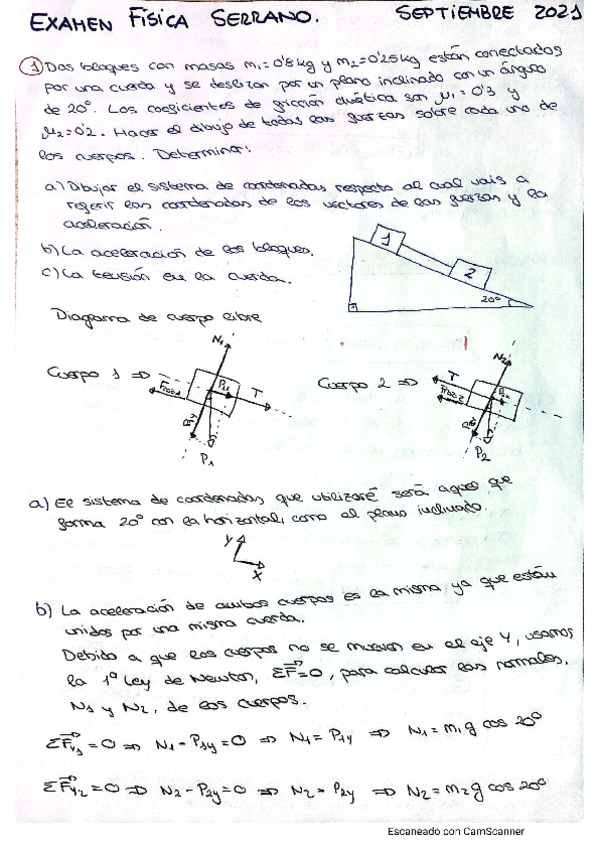 EXAMEN FÍSICA SERRANO. SEPTIEMBRE 2021
1) Dos bloques con masas m₁=0'8 kg y m₂=0'25 kg están conectados
por una cuerda y se deslizan por un plano inclinado con un ángulo
de 20º. Los coeficientes de fricción cinética son μ₁=0'3 y
μ₂=0'2. Hacer el dibujo de todas las fuerzas sobre cada uno de
los cuerpos. Determinar:
a) Dibujar el sistema de coordenadas respecto al cual vais a
referir las coordenadas de los vectores de las fuerzas y la
aceleración.
b) La aceleración de los bloques.
c) La tensión en la cuerda.
1
2
20º
Diagrama de cuerpo libre
Cuerpo 1 ⇒
N₁
P₁ₓ
T
P₁
Cuerpo 2 ⇒
N₂
T
P₂
a) El sistema de coordenadas que utilizaré será aquel que
forma 20º con la horizontal, como el plano inclinado.
Y
X
b) La aceleración de ambos cuerpos es la misma, ya que están
unidos por una misma cuerda.
Debido a que los cuerpos no se mueven en el eje Y, usamos
la 1ª Ley de Newton, ΣF⃗=0, para calcular las normales,
N₁ y N₂, de los cuerpos.
ΣF⃗y₁=0 ⇒ N₁-P₁y=0 ⇒ N₁=P₁y ⇒ N₁=m₁g cos 20º
ΣF⃗y₂=0 ⇒ N₂-P₂y=0 ⇒ N₂=P₂y ⇒ N₂=m₂g cos 20º
Escaneado con CamScanner